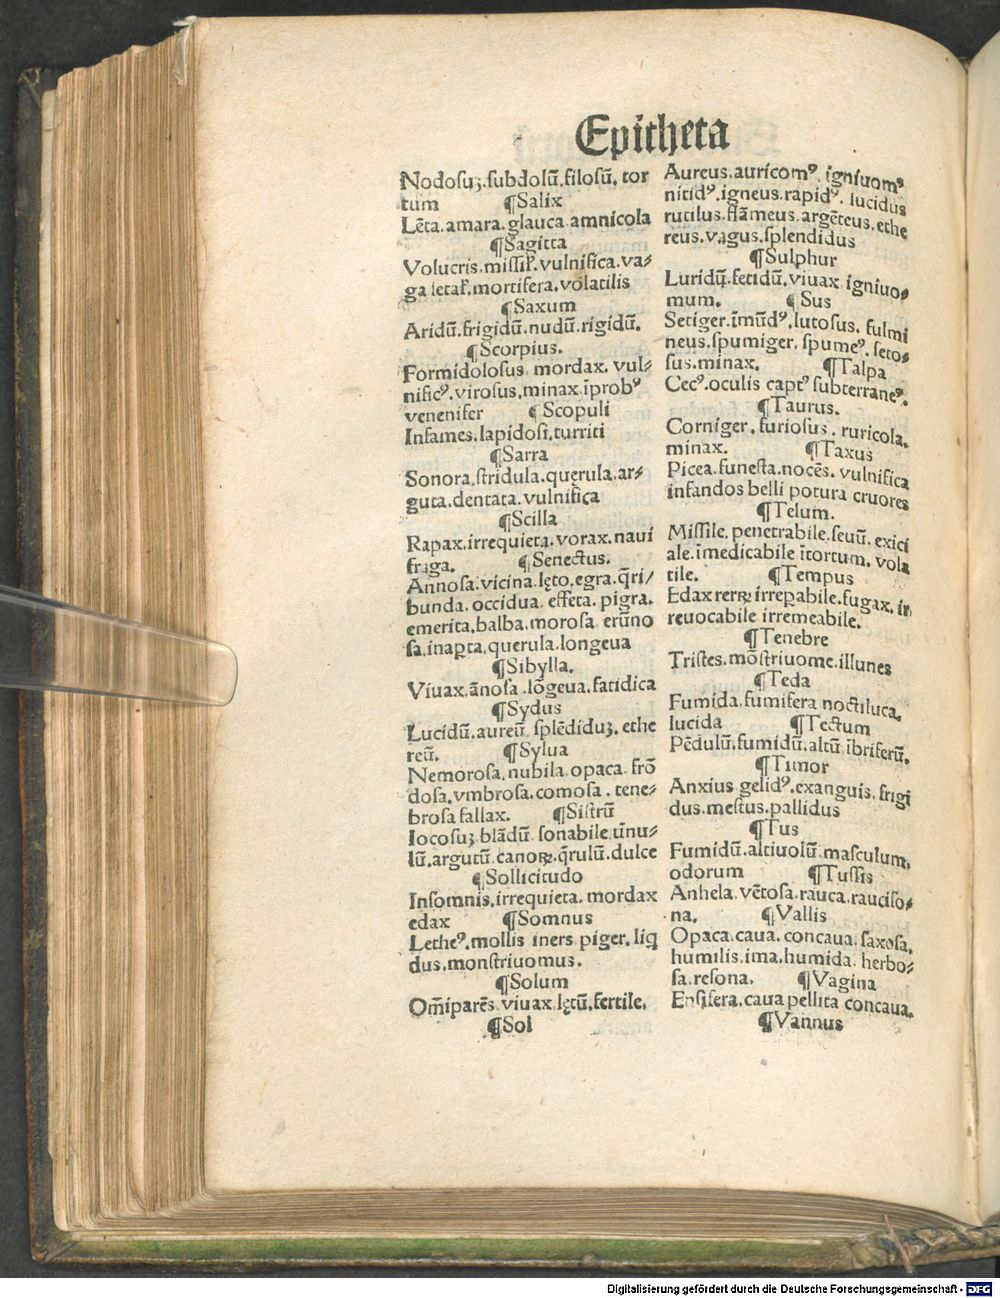 Epitheta
Nodosuꝫ.subdolũ.filosũ. tor
tum ¶Salix
Lẽta.amara.glauca.amnicola
¶Sagitta
Volucris.missil̕.vulnifica.va⸗
ga letal̕.mortifera.volatilis
¶Saxum
Aridũ.frigidũ.nudũ.rigidũ.
¶Scorpius.
Formidolosus mordax. vul⸗
nificꝰ.virosus,minax ĩprobꝰ
venenifer ¶Scopuli
Infames.lapidosi.turriti
¶Sarra
Sonora,stridula.quęrula.ar⸗
guta.dentata.vulnifica
¶Scilla
Rapax.irrequieta.vorax.naui
fraga. ¶Senectus.
Annosa.vicina.lęto.egra.q̃ri/
bunda.occidua.effeta.pigra.
emerita.balba.morosa erũno
sa.inapta.querula.longeua
¶Sibylla.
Viuax.ãnosa.lõgeua.fatidica
¶Sydus
Lucidũ.aureũ splẽdiduꝫ.ethe
reũ. ¶Sylua
Nemorosa.nubila.opaca.frõ
dosa.vmbrosa.comosa.tene⸗
brosa fallax. ¶Sistrũ
Iocosuꝫ blãdũ sonabile.tĩnu⸗
lũ.argutũ.canoꝝ.q̃rulũ.dulce
¶Sollicitudo
Insomnis.irrequieta.mordax
edax ¶Somnus
Letheꝰ.mollis iners piger.liq
dus.monstriuomus.
¶Solum
Om̃iparẽs viuax lętũ.fertile.
¶Sol
Aureus.auricomꝰ.igniuomꝰ
nitidꝰ.igneus.rapidꝰ.lucidus
rutilus.flãmeus.argẽteus.ethe
reus.vagus.splendidus
¶Sulphur
Luridũ.fetidũ.viuax igniuo⸗
mum. ¶Sus
Setiger.ĩmũdꝰ.lutosus.fulmi
neus.spumiger.spumeꝰ.seto⸗
sus.minax. ¶Talpa
Cecꝰ.oculis captꝰ subterraneꝰ.
¶Taurus.
Corniger.furiosus.ruricola.
minax. ¶Taxus
Picea.funesta.nocẽs.vulnifica
infandos belli potura cruores
¶Telum.
Missile.penetrabile.seuũ.exici
ale.ĩmedicabile ĩtortum.vola
tile. ¶Tempus
Edax rerꝝ irrepabile.fugax.ir
reuocabile irremeabile.
¶Tenebre
Tristes.mõstriuome.illunes
¶Teda
Fumida.fumifera noctiluca.
lucida ¶Tectum
Pẽdulũ.fumidũ.altũ ĩbriferũ.
¶Timor
Anxius gelidꝰ.exanguis.frigi
dus.mestus.pallidus
¶Tus
Fumidũ.altiuolũ masculum.
odorum ¶Tussis
Anhela.vẽtosa.rauca.rauciso⸗
na. ¶Vallis
Opaca.caua.concaua.saxosa.
humilis.ima.humida.herbo⸗
sa.resona. ¶Vagina
Ensifera.caua pellita concaua.
¶Vannus
Digitalisierung gefördert durch die Deutsche Forschungsgemeinschaft - DFG